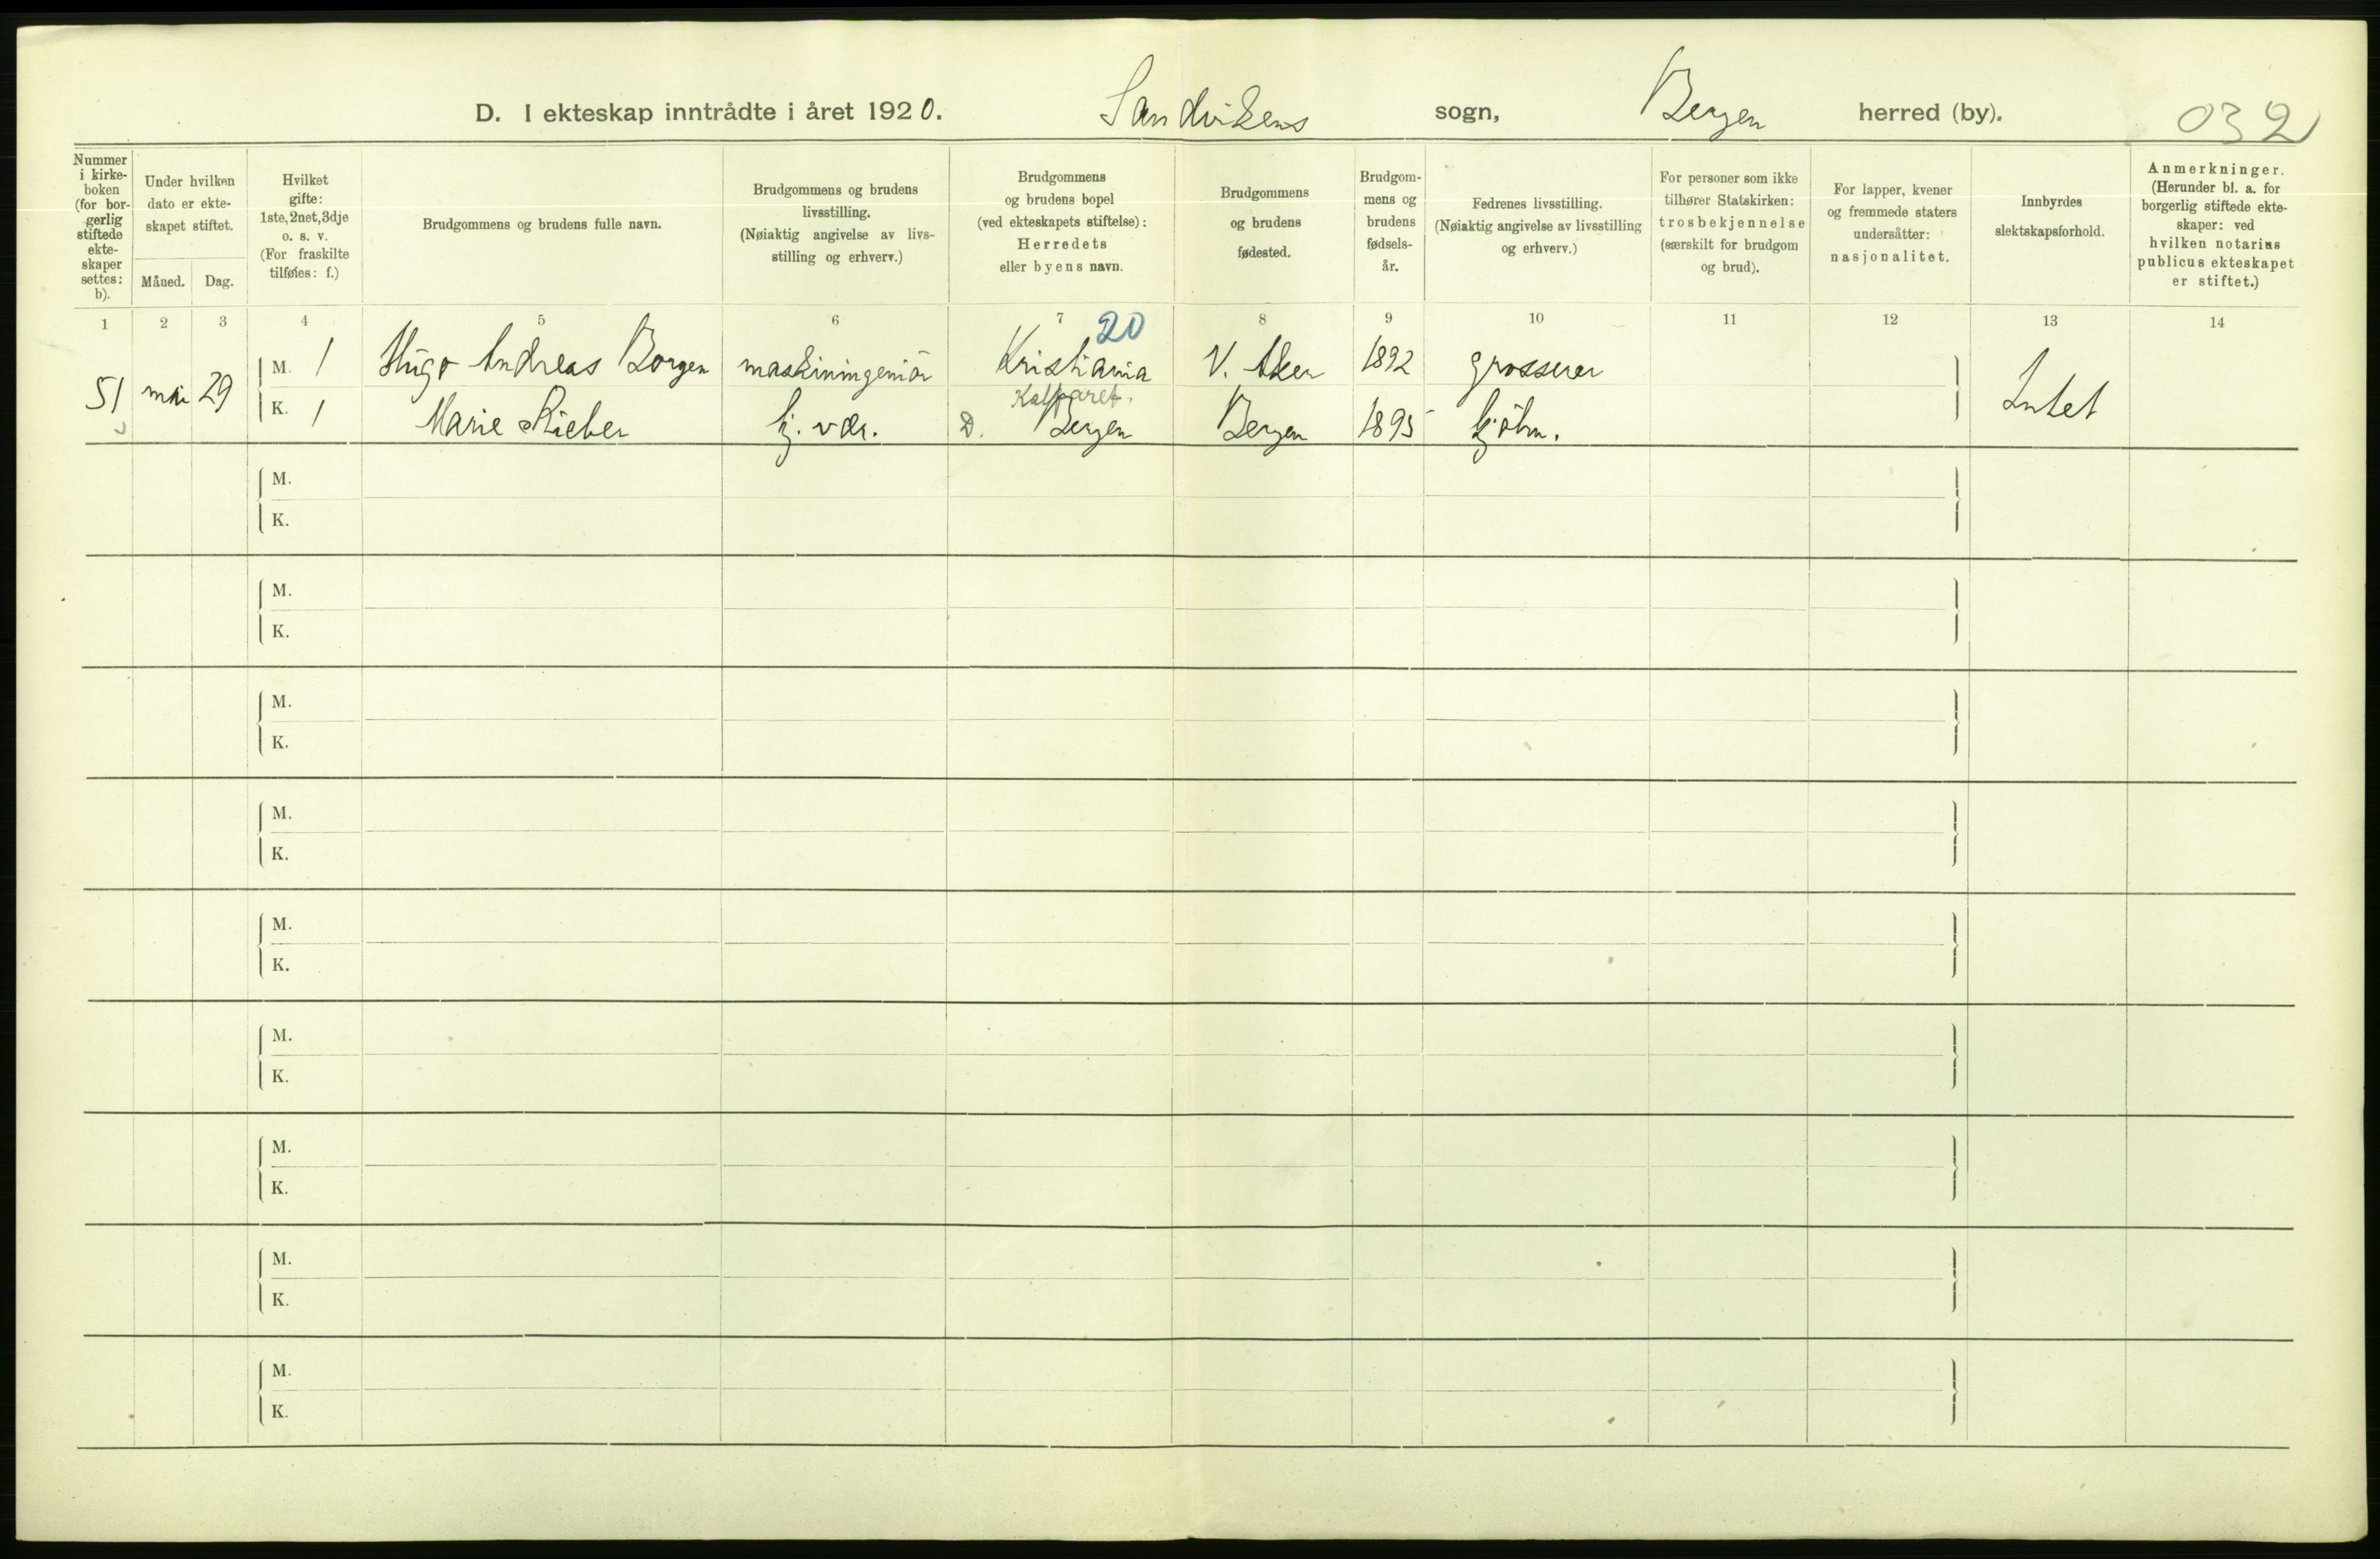 D. I ekteskap inntrådte i året 1920. Sandvikens sogn, Bergen herred (by). 032
Nummer i kirkeboken (for borgerlig stiftede ekteskaper settes: b).
Under hvilken dato er ekteskapet stiftet.
Måned. Dag.
Hvilket gifte: 1ste, 2net, 3dje o. s. v. (For fraskilte tilføies: f.)
Brudgommens og brudens fulle navn.
Brudgommens og brudens livsstilling. (Nøiaktig angivelse av livsstilling og erhverv.)
Brudgommens og brudens bopel (ved ekteskapets stiftelse): Herredets eller byens navn.
Brudgommens og brudens fødested.
Brudgommens og brudens fødselsår.
Fedrenes livsstilling. (Nøiaktig angivelse av livsstilling og erhverv.)
For personer som ikke tilhører Statskirken: trosbekjennelse (særskilt for brudgom og brud).
For lapper, kvener og fremmede staters undersåtter: nasjonalitet.
Innbyrdes slektskapsforhold.
Anmerkninger. (Herunder bl. a. for borgerlig stiftede ekteskaper: ved hvilken notarius publicus ekteskapet er stiftet.)
1 2 3 4 5 6 7 8 9 10 11 12 13 14
20
51 mai 29 M. 1 Hugo Andreas Borgen maskiningeniör Kristiania V. Aker 1892 grosserer Intet
K. 1 Marie Stieber hj. vær. D. Bergen Bergen 1895 kjöbm.
M.
K.
M.
K.
M.
K.
M.
K.
M.
K.
M.
K.
M.
K.
M.
K.
M.
K.